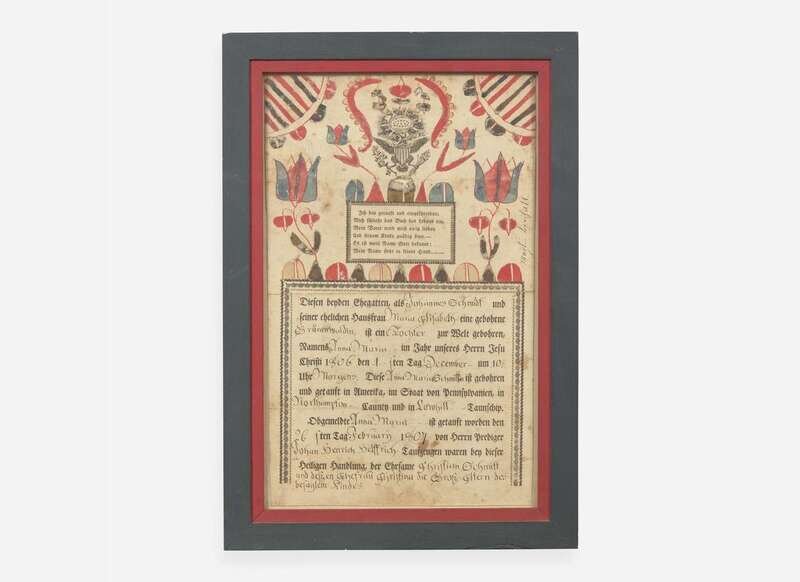 Ich bin getauft und eingeschrieben,
Mich schließt das Buch des Lebens ein,
Mein Vater wird mich ewig lieben
Und seinem Kinde gnädig seyn.—
Es ist mein Name Gott bekannt;
Mein Name steht in seiner Hand.
Diesen beyden Ehegatten, als Johannes Schmidt und
seiner ehelichen Hausfrau Maria Elisabeth eine gebohrne
ist ein Tochter zur Welt gebohren,
Namens Anna Maria im Jahr unseres Herrn Jesu
Christi 1806 den 1 sten Tag December um 10
Uhr Morgens. Diese Anna Maria ist gebohren
und getauft in Amerika, im Staat von Pennsylvanien, in
Northampton Caunty und in Lowhill Taunschip.
Obgemeldte Anna Maria ist getauft worden den
26 sten Tag Februariy 1807 von Herrn Prediger
Johan Henrich Helffrich Taufzeugen waren bey dieser
Heiligen Handlung, der Ehrsame Christian Schmitt
und dessen Ehefrau Christina die Groß-Eltern des
besagtem Kindes